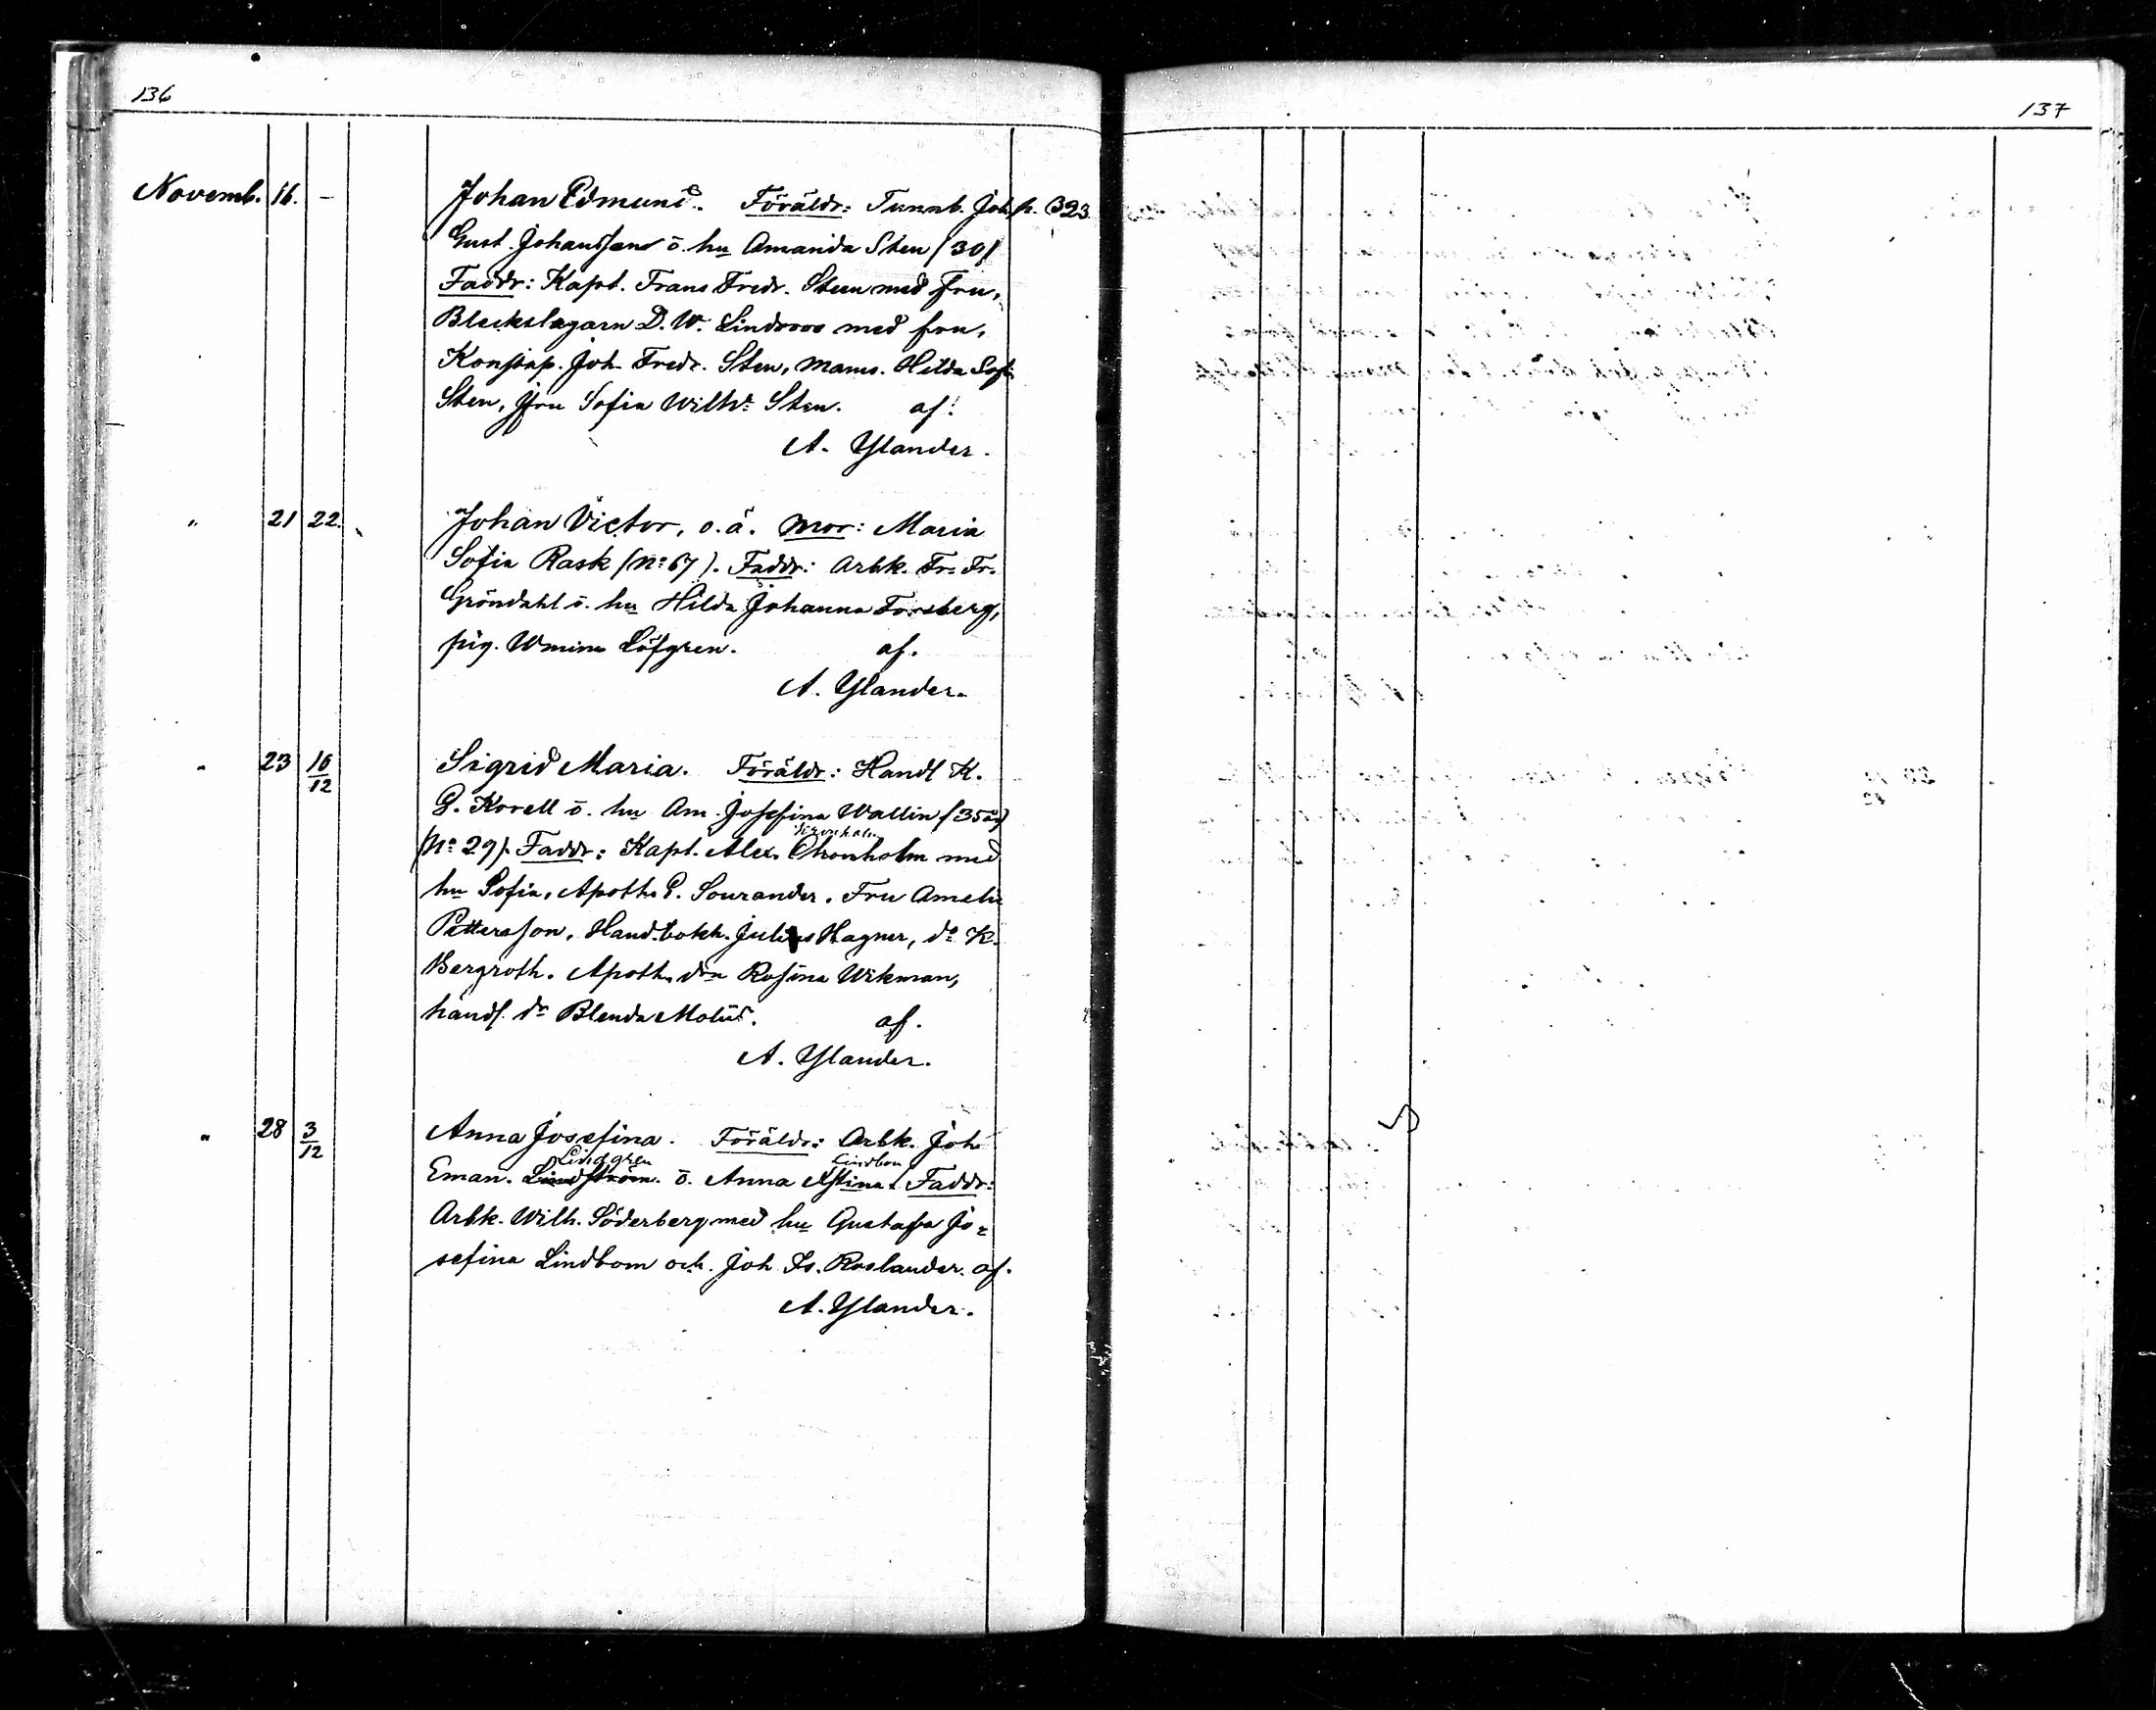 136
137
Novemb. 16. – Johan Edmund. Föräldr: Tunnb. Joh. p. 323.
Gust. Johansson o. hu Amanda Sten (30)
Faddr: Kapt. Frans Fredr. Steen med fru,
Bleckslagarn D. W. Lindroos med fru,
Konstap. Joh. Fredr. Sten, mams. Hilda Sofi
Sten, jfru Sofia Wilh. Sten. af:
A. Ylander.
" 21 22. Johan Victor, o. ä. Mor: Maria
Sofia Rask (No 67). Faddr: Arbk. Fr. Fr.
Gröndahl o. hu Hilda Johanna Forsberg,
pig. Wmina Löfgren. af.
A. Ylander.
" 23 16/12 Sigrid Maria. Föräldr: Handl K.
G. Korell o. hu Am. Josefina Wallin (35 år)
(No 29). Faddr: Kapt. Alex. med
hu Sofia, Apoth. G. Sourander. Fru Amelie
Pettersson, Hand.bokh. Julius Hagner, do K.
Bergroth. Apoth. dn Rosina Wikman,
handl. dr Blenda Moliis. af.
A. Ylander.
" 28 3/12 Anna Josefina. Föräldr: Arbk. Joh
Lindgren Lindbom
Eman. Lindström. o. Anna Stina. Faddr:
Arbk. Wilh. Söderberg med hu Gustafva Jo=
sefina Lindbom och. Joh Is. Roslander. af.
A. Ylander.